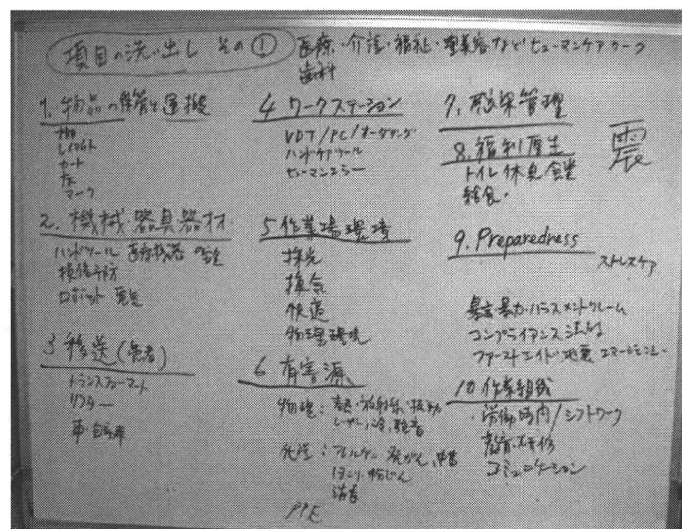 項目の洗い出し その①
医療・介護・福祉・理美容などヒューマンケアワーク
歯科
1. 物品の保管と運搬
棚
レイアウト
カート
床
マーク
2. 機械 器具器材
ハンドツール 医療機器 の安全
損傷予防
ロボット
3 移送(患者)
トランスファーマット
リフター
車・自転車
4 ワークステーション
VDT/PC/オーダリング
ハンドケアツール
ヒューマンエラー
5 作業場環境
採光
換気
快適
物理環境
6 有害源
物理:高熱・放射線・振動
化学:アレルゲン 発がん
ほこり・粉じん
消毒
PPE
7. 感染管理
8. 福利厚生
トイレ 休息 食堂
給食・
震
9. Preparedness
ストレスケア
暴言暴力・ハラスメント クレーム
コンプライアンス 法的
ファーストエイド・地震 エマージェンシー
10 作業組織
・労働時間/シフトワーク
教育・研修
コミュニケーション